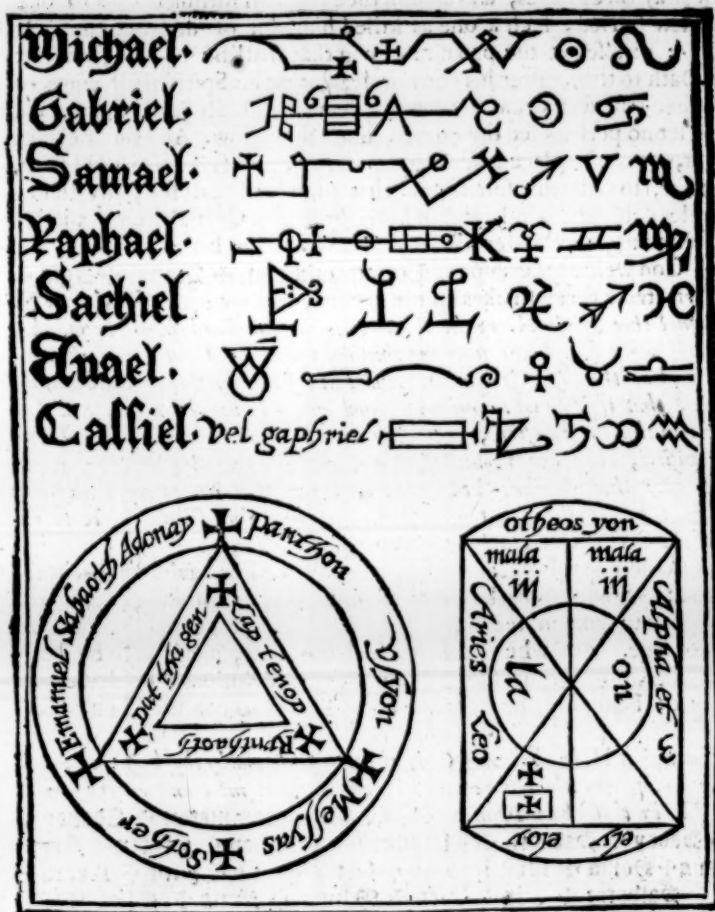 Michael.
Gabriel.
Samael.
Raphael.
Sachiel
Anael.
Caſſiel. vel gaphriel
Emanuel Sabaoth Adonay
panthon
Vſyon
Meſſyas
Sother
Dut tha gen
Lap tenop
otheos yon
mala mala
iij iij
Aries
Leo
Alpha et ω
on
ely
eloy